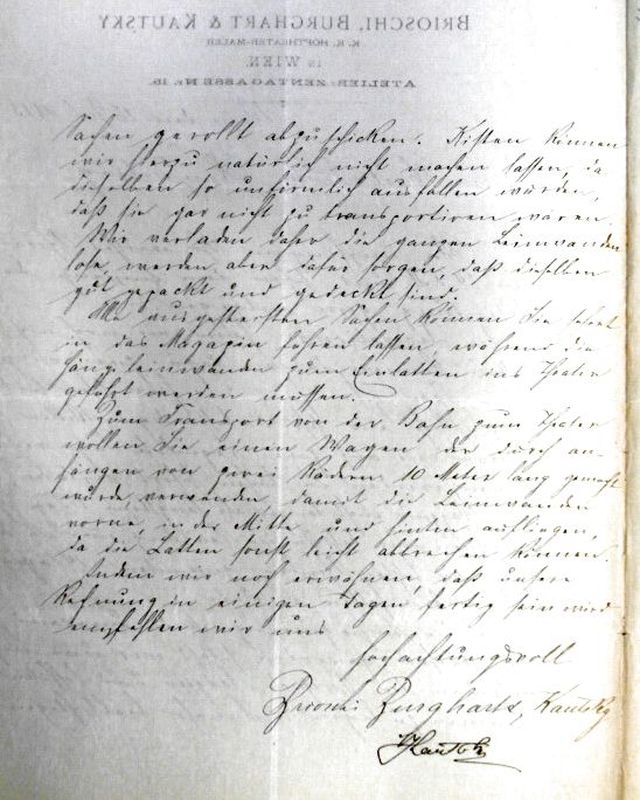 BRIOSCHI, BURGHART & KAUTSKY
K. K. HOFTHEATER-MALER
IN WIEN
ATELIER: ZENTAGASSE Nr.
Sachen gerollt abzuschicken. Kisten können
wir hierzu natürlich nicht machen lassen, da
dieselben so unförmlich ausfallen würden,
daß sie gar nicht zu transportiren wären.
Wir verladen daher die ganzen Leinwanden
lose, werden aber dafür sorgen, daß dieselben
gut gepackt und gedeckt sind.
Alle Sachen können Sie sofort
in das Magazin führen lassen, während die
Hängeleinwanden zum Einlatten ins Theater
geführt werden müssen.
Zum Transport von der Bahn zum Theater
wollen Sie einen Wagen der durch an-
hängen von zwei Rädern 10 Meter lang gemacht
wurde, verwenden, damit die Leinwanden
vorne, in der Mitte und hinten aufliegen,
da die Latten sonst leicht abbrechen können.
Indem wir noch erwähnen, daß unsere
Rechnung in einigen Tagen fertig sein wird
empfehlen wir uns
hochachtungsvoll
Brioschi Burghart, Kautsky
Kautsky